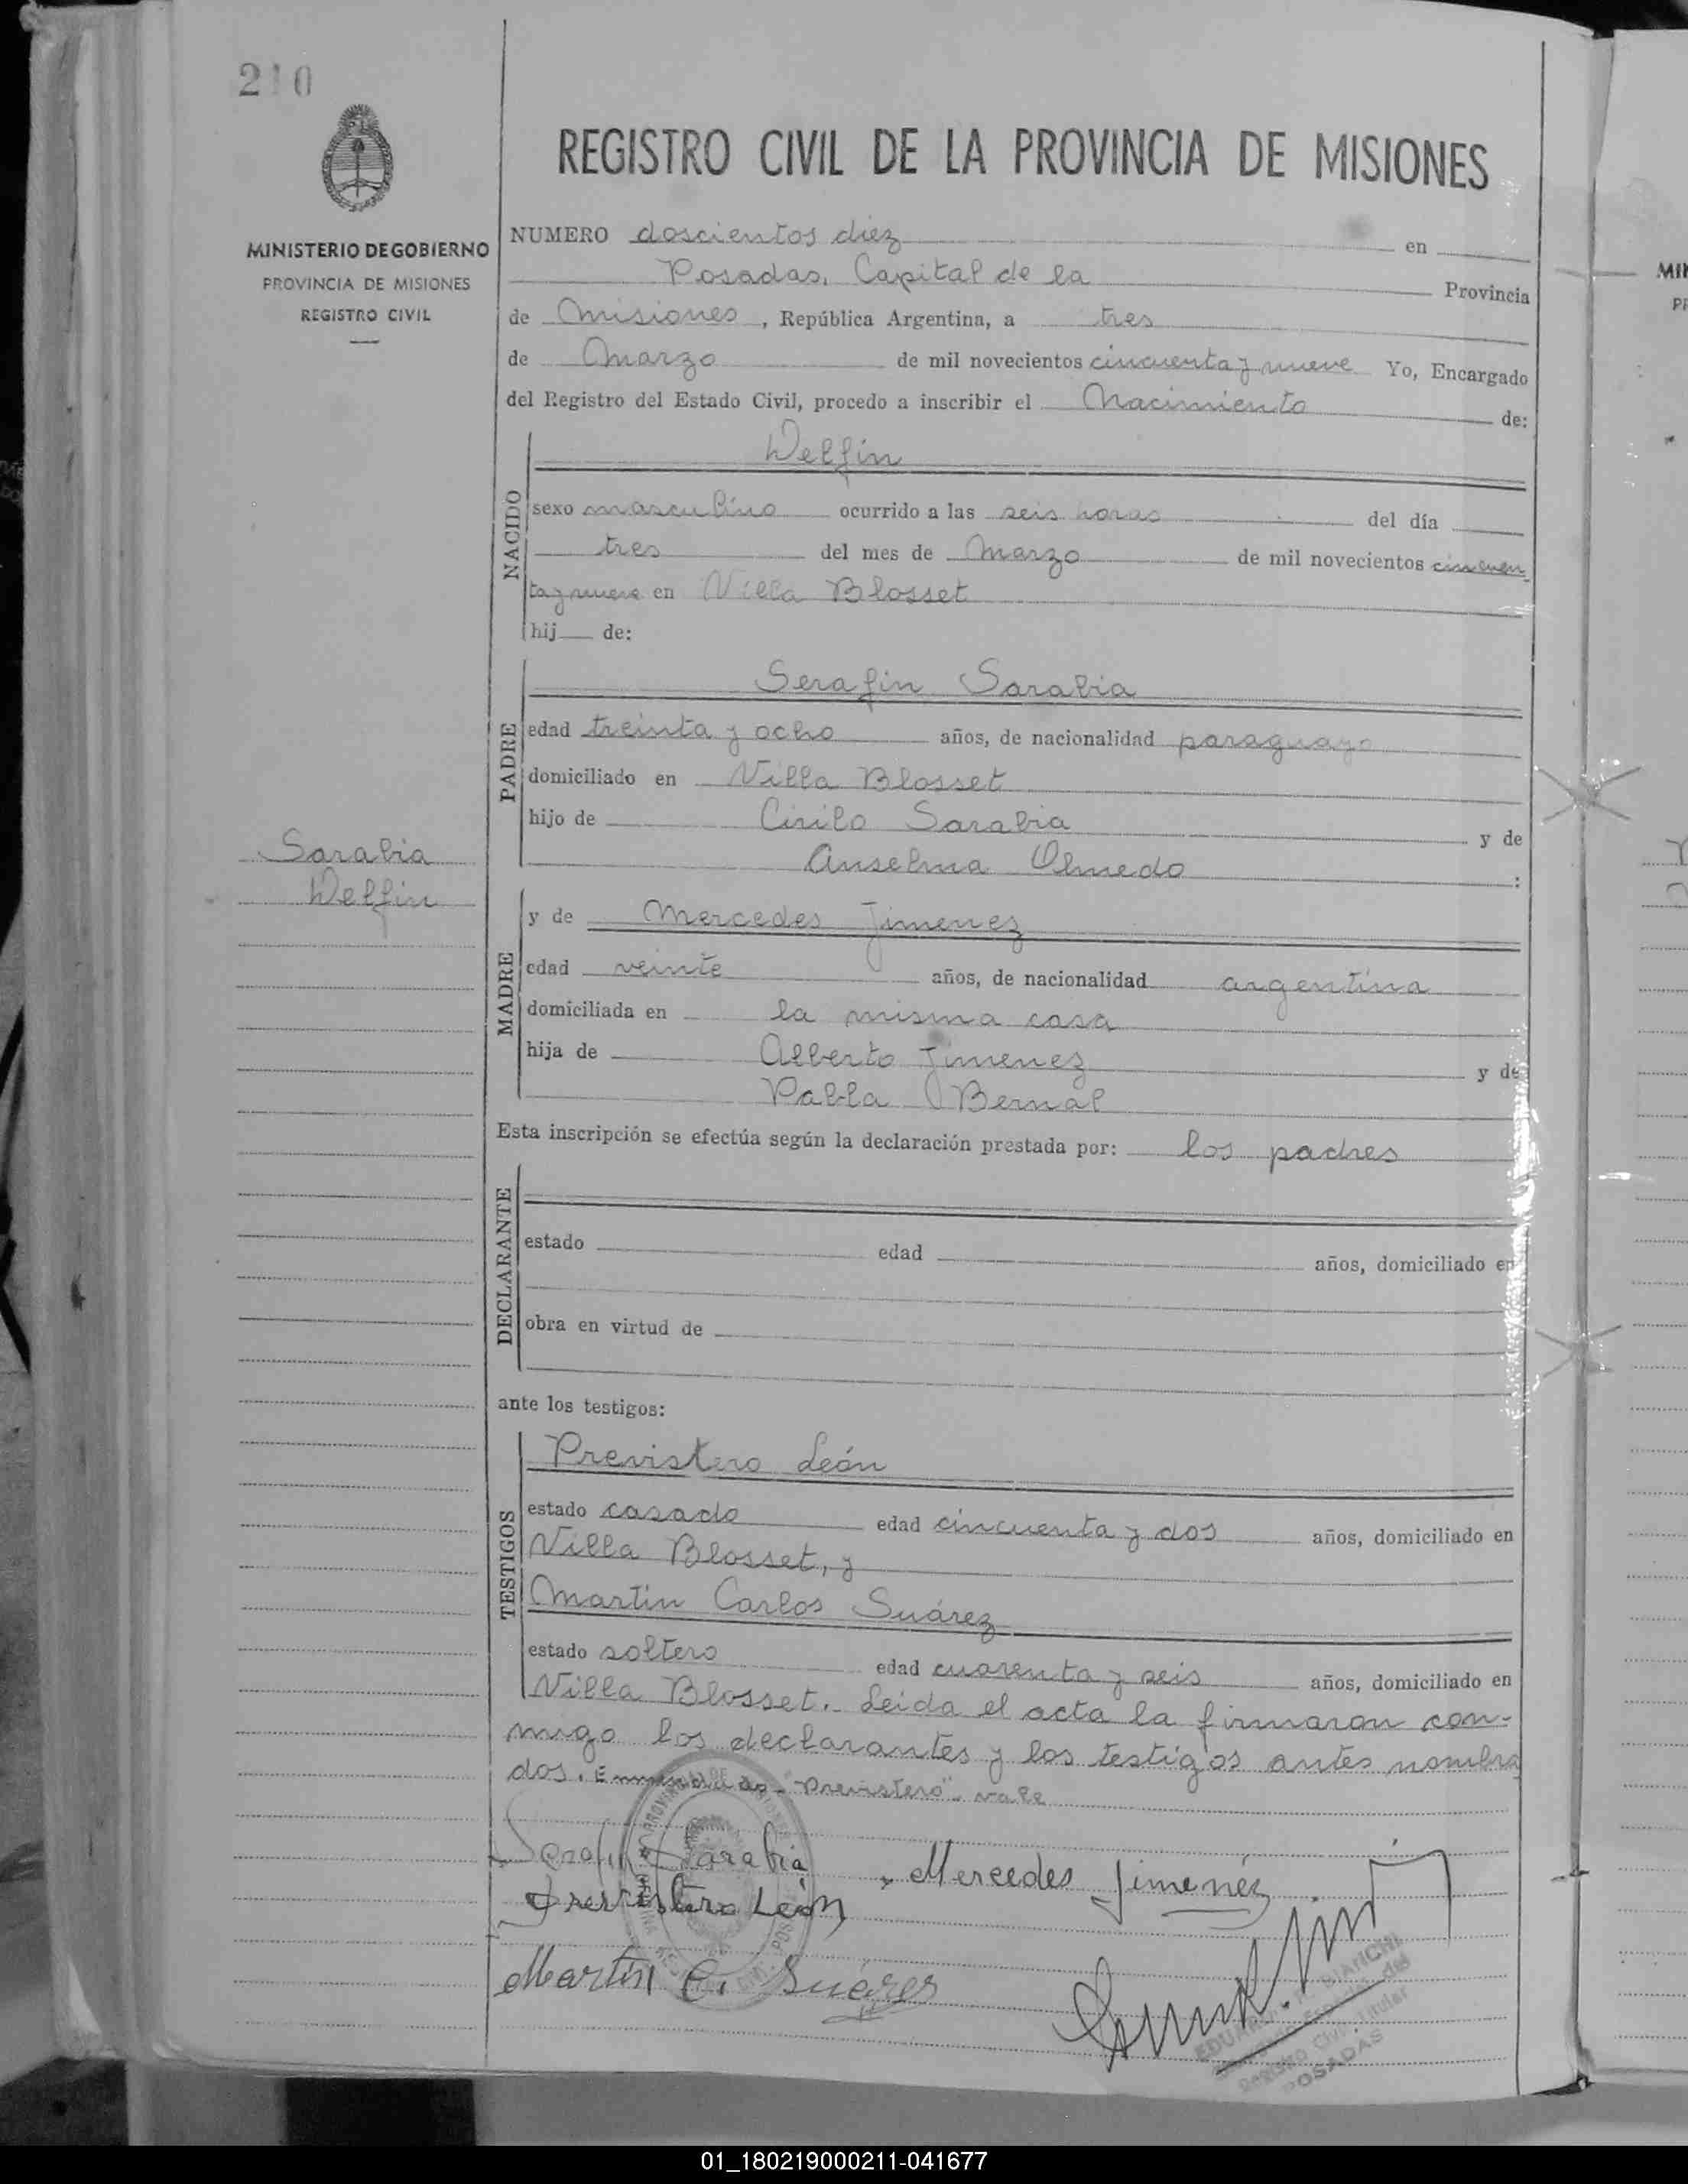 210
REGISTRO CIVIL DE LA PROVINCIA DE MISIONES
MINISTERIO DE GOBIERNO
PROVINCIA DE MISIONES
REGISTRO CIVIL
NUMERO doscientos diez en
Posadas, Capital de la Provincia
de Misiones, República Argentina, a tres
de Marzo de mil novecientos cincuenta y nueve Yo, Encargado
del Registro del Estado Civil, procedo a inscribir el Nacimiento de:
NACIDO
Welfin
sexo masculino ocurrido a las seis horas del día
tres del mes de Marzo de mil novecientos cincuen
ta y nueve en Villa Blosset
hij de:
PADRE
Serafin Sarabia
edad treinta y ocho años, de nacionalidad paraguayo
domiciliado en Villa Blosset
hijo de Cirilo Sarabia y de
Anselma Olmedo :
Sarabia
Welfin
MADRE
y de Mercedes Jimenez
edad veinte años, de nacionalidad argentina
domiciliada en la misma casa
hija de Alberto Jimenez y de
Pabla Bernal
Esta inscripción se efectúa según la declaración prestada por: los padres
DECLARANTE
estado edad años, domiciliado en
obra en virtud de
ante los testigos:
TESTIGOS
Previstero León
estado casado edad cincuenta y dos años, domiciliado en
Villa Blosset, y
Martin Carlos Suárez
estado soltero edad cuarenta y seis años, domiciliado en
Villa Blosset. Leida el acta la firmaron con-
migo los declarantes y los testigos antes nombra
dos. Enmendado - "Previstero" - vale
Serafin Sarabia
Mercedes Jimenéz
Previstero León
Martín C. Suárez
POSADAS
01_180219000211-041677